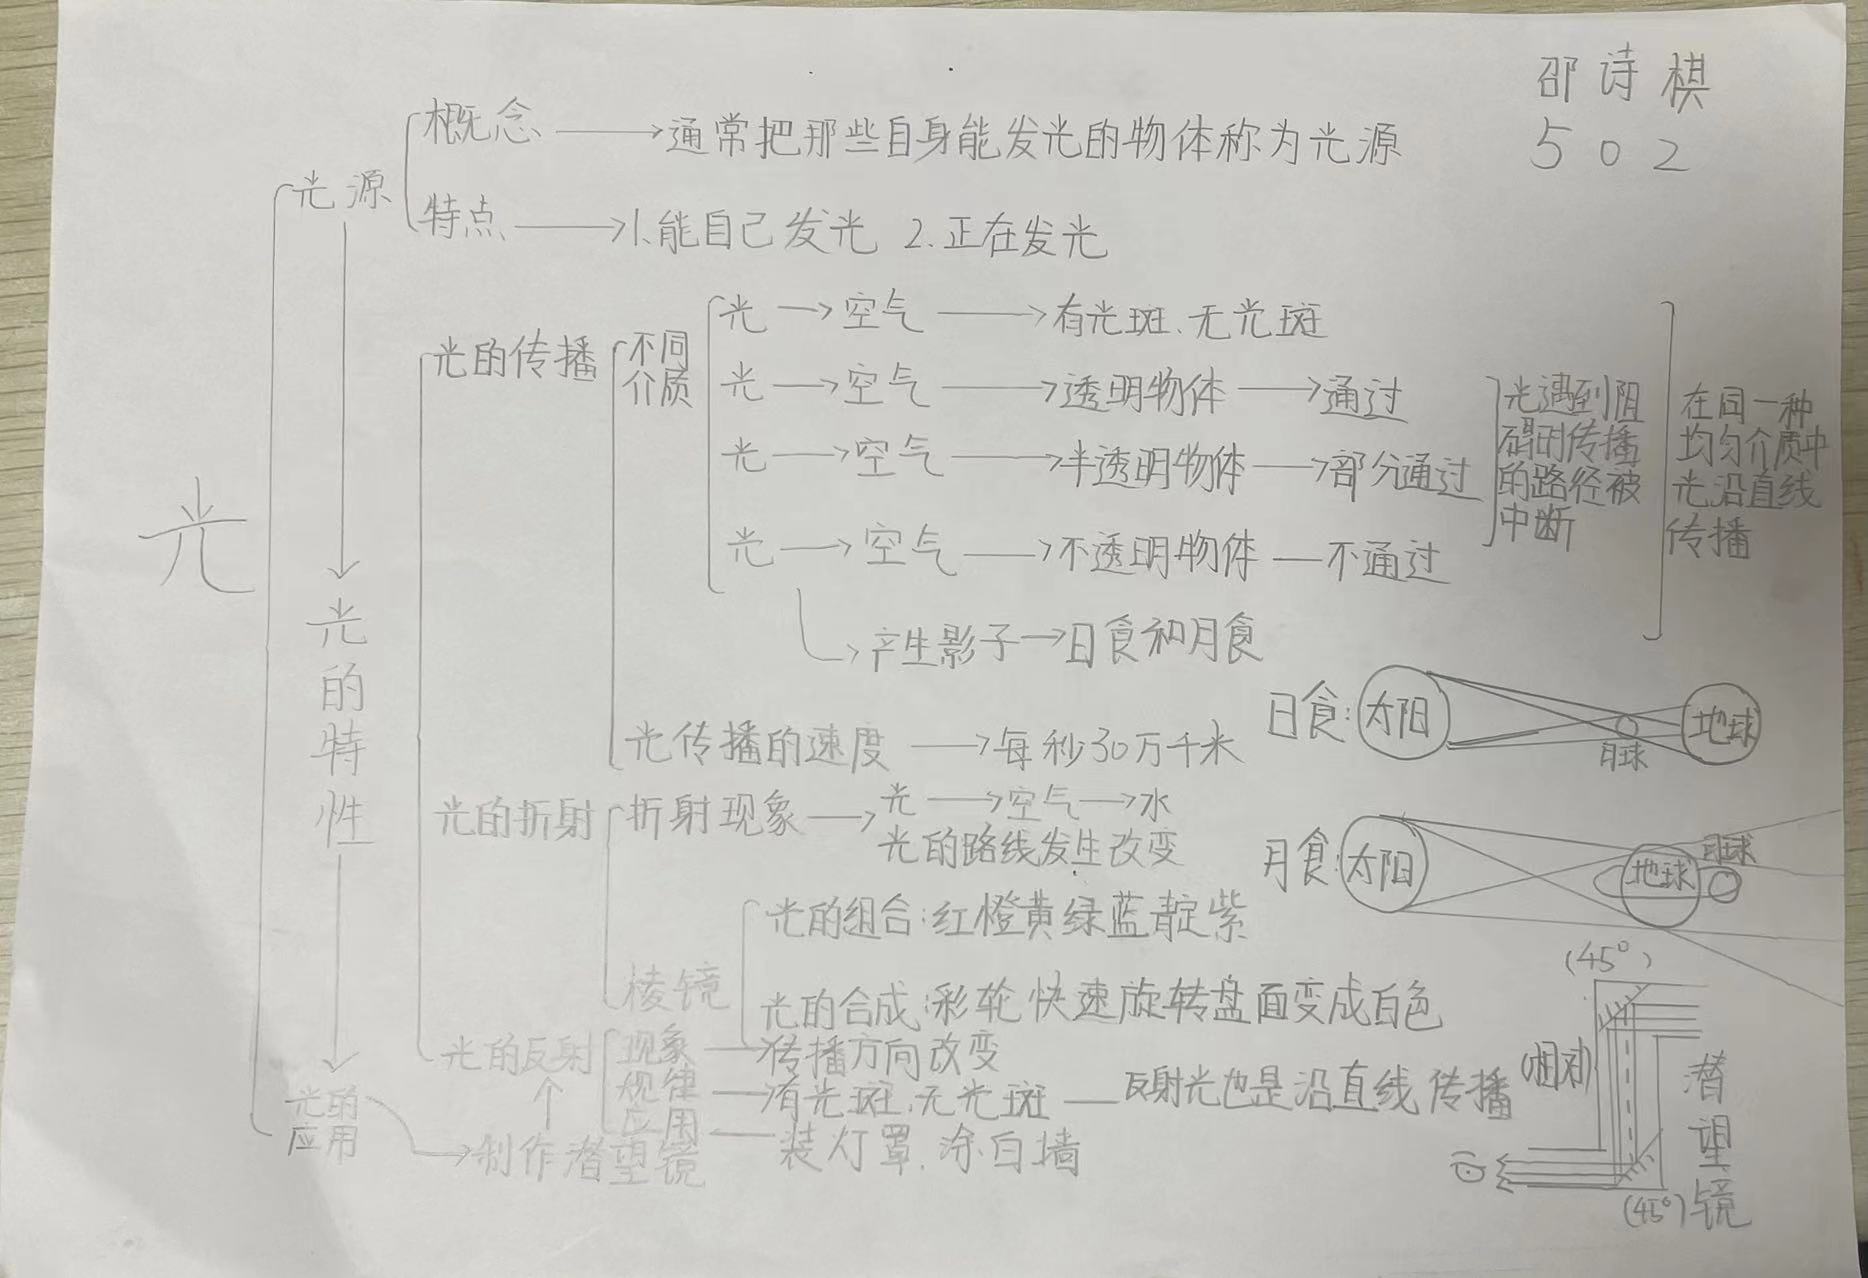 邵诗棋
502
概念 → 通常把那些自身能发光的物体称为光源
光源
特点 → 1.能自己发光 2.正在发光
光 → 空气 → 有光斑、无光斑
光的传播
不同
介质
光 → 空气 → 透明物体 → 通过
光 → 空气 → 半透明物体 → 部分通过
光 → 空气 → 不透明物体 — 不通过
光遇到阻
碍时传播
的路径被
中断
在同一种
均匀介质中
光沿直线
传播
光
光的特性
→ 产生影子 → 日食和月食
日食:
太阳
月球
地球
光传播的速度 → 每秒30万千米
光的折射
折射现象 → 光 → 空气 → 水
光的路线发生改变
月食:
太阳
地球
月球
光的组合:红橙黄绿蓝靛紫
棱镜
光的合成:彩轮快速旋转盘面变成白色
光的反射
现象 — 传播方向改变
规律 — 有光斑、无光斑 — 反射光也是沿直线传播
应用 — 装灯罩、涂白墙
光的
应用
→ 制作潜望镜
(45°)
(相对)
潜望镜
(45°)